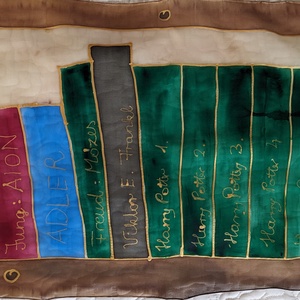 Jung: AION
ADLER
Freud: Mózes
Viktor E. Frankl
Harry Potter 1.
Harry Potter 2.
Harry Potter 3.
Harry Potter 4